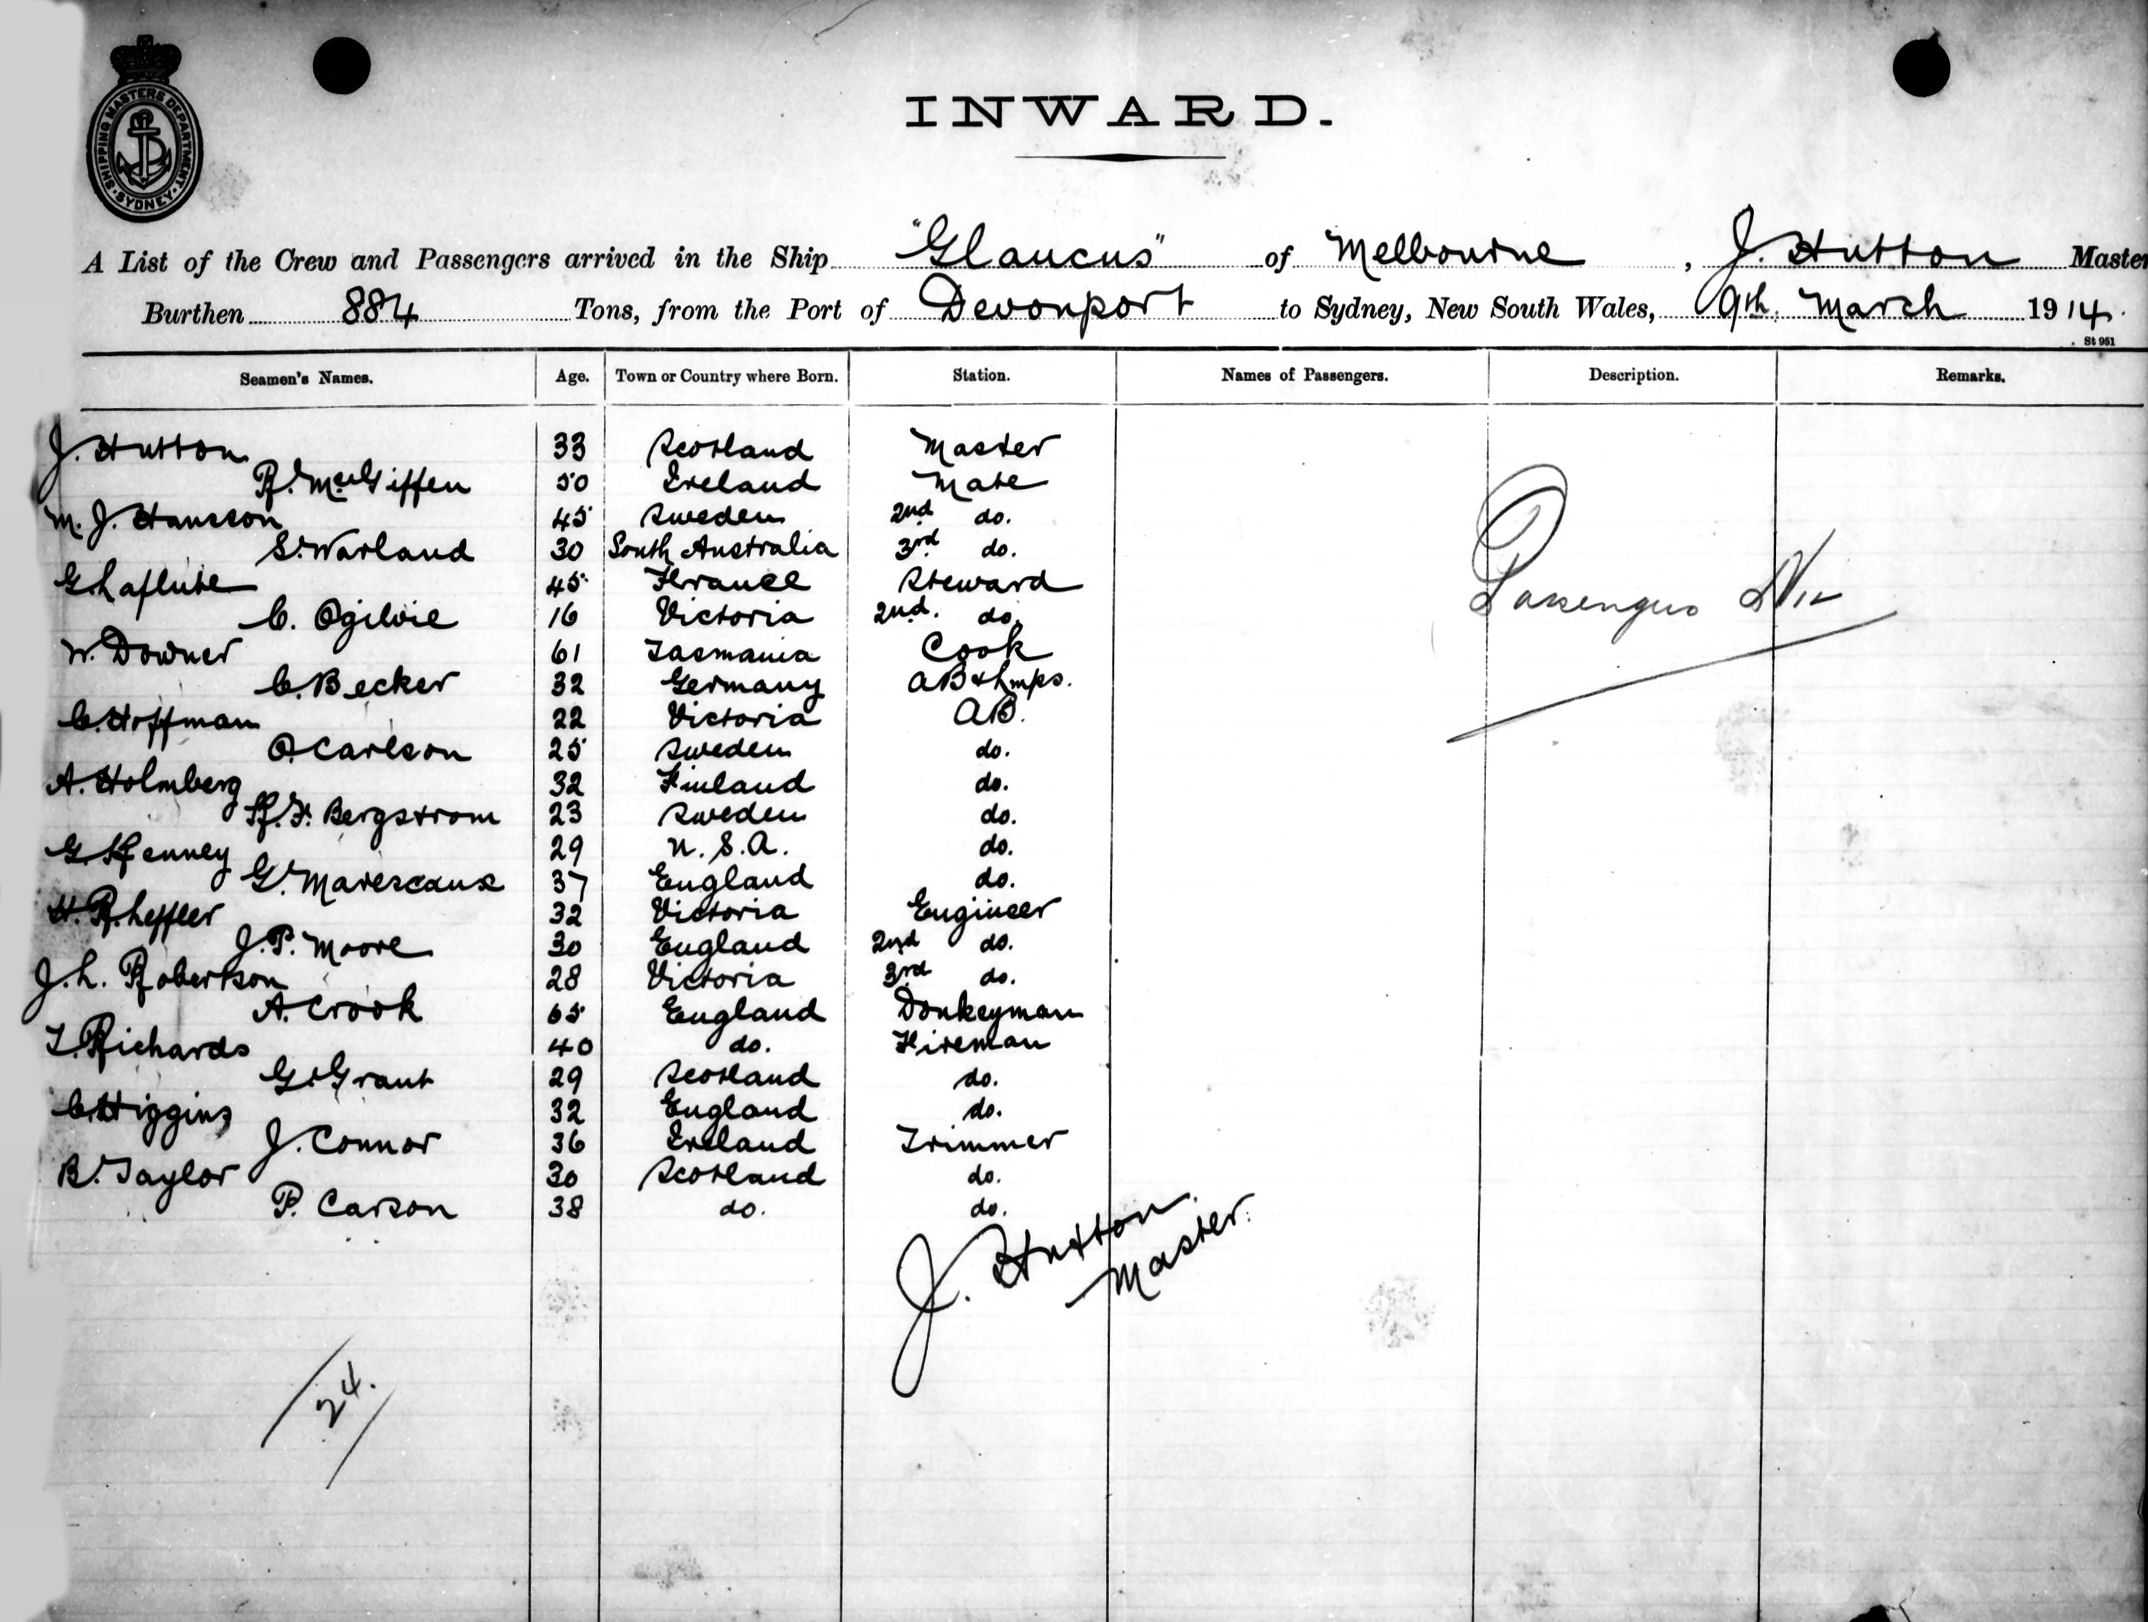 SHIPPING MASTERS DEPARTMENT
SYDNEY
INWARD.
A List of the Crew and Passengers arrived in the Ship "Glaucus" of Melbourne, J. Hutton Master
Burthen 884 Tons, from the Port of Devonport to Sydney, New South Wales, 9th March 1914.
St 951
Seamen's Names. Age. Town or Country where Born. Station. Names of Passengers. Description. Remarks.
J. Hutton 33 Scotland Master
R. McGiffen 50 Ireland Mate
M. J. Hansson 45 Sweden 2nd do.
S. Warland 30 South Australia 3rd do.
G. Laflute 45 France Steward
C. Ogilvie 16 Victoria 2nd. do.
W. Downer 61 Tasmania Cook
C. Becker 32 Germany AB & Lmps.
C. Hoffman 22 Victoria AB.
O. Carlson 25 Sweden do.
A. Holmberg 32 Finland do.
K. F. Bergstrom 23 Sweden do.
G. Kenney 29 U.S.A. do.
G. Marescaux 37 England do.
H. R. Leffler 32 Victoria Engineer
J. P. Moore 30 England 2nd do.
J. L. Robertson 28 Victoria 3rd do.
A. Crook 65 England Donkeyman
T. Richards 40 do. Fireman
G. Grant 29 Scotland do.
C. Higgins 32 England do.
J. Connor 36 Ireland Trimmer
B. Taylor 30 Scotland do.
P. Carson 38 do. do.
Passengers Nil
J. Hutton
Master.
24.